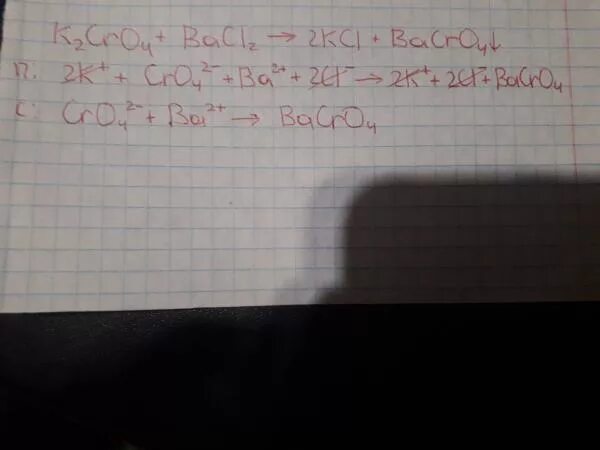 K₂CrO₄ + BaCl₂ → 2KCl + BaCrO₄↓
П: 2K⁺ + CrO₄²⁻ + Ba²⁺ + 2Cl⁻ → 2K⁺ + 2Cl⁻ + BaCrO₄
С: CrO₄²⁻ + Ba²⁺ → BaCrO₄